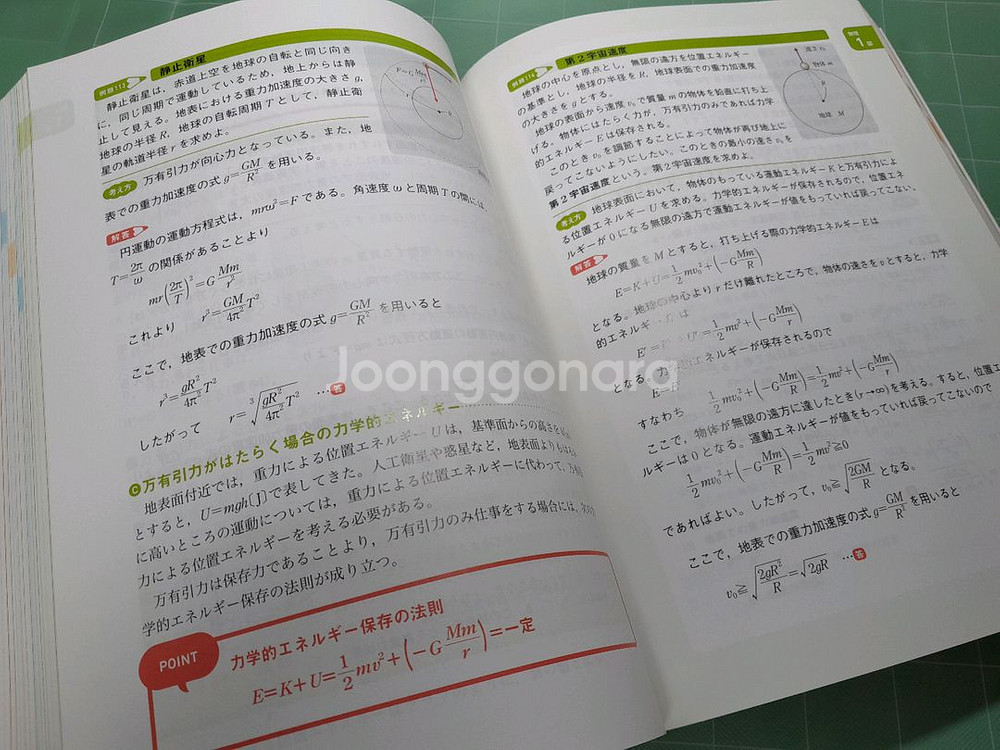 例題113 静止衛星
静止衛星は，赤道上空を地球の自転と同じ向き
に，同じ周期で運動しているため，地上からは静
止して見える。地表における重力加速度の大きさ g，
地球の半径 R，地球の自転周期 T として，静止衛
星の軌道半径 r を求めよ。
考え方 万有引力が向心力となっている。また，地
表での重力加速度の式 g=GM/R² を用いる。
解答
円運動の運動方程式は，mrω²=F である。角速度 ω と周期 T の間には，
T=2π/ω の関係があることより
mr(2π/T)²=G Mm/r²
これより r³=GM/4π² T²
ここで，地表での重力加速度の式 g=GM/R² を用いると
r³=gR²/4π² T²
したがって r=³√(gR²/4π² T²) …答
C 万有引力がはたらく場合の力学的エネルギー
地表面付近では，重力による位置エネルギー U は，基準面からの高さを
とすると，U=mgh[J]で表してきた。人工衛星や惑星など，地表面よりも
に高いところの運動については，重力による位置エネルギーに代わって，万有
力による位置エネルギーを考える必要がある。
万有引力は保存力であることより，万有引力のみ仕事をする場合には，
学的エネルギー保存の法則が成り立つ。
POINT
力学的エネルギー保存の法則
E=K+U=1/2 mv²+(−G Mm/r)=一定
物理
1
例題114 第2宇宙速度
地球の中心を原点とし，無限の遠方を位置エネルギー
の基準とし，地球の半径を R，地球表面での重力加速度
の大きさを g とする。
地球の表面から速度 v₀ で質量 m の物体を鉛直に打ち上
げる。物体にはたらく力が，万有引力のみであれば力学
的エネルギー E は保存される。
このとき v₀ を調節することによって物体が再び地上に
戻ってこないようにしたい。このときの最小の速さ v₀ を
第2宇宙速度という。第2宇宙速度を求めよ。
速さ v₀
物体 m
R
地球 M
考え方 地球表面において，物体のもっている運動エネルギー K と万有引力によ
る位置エネルギー U を求める。力学的エネルギーが保存されるので，位置エネ
ルギーが 0 になる無限の遠方で運動エネルギーが値をもっていれば戻ってこない。
解答
地球の質量を M とすると，打ち上げる際の力学的エネルギー E は
E=K+U=1/2 mv₀²+(−G Mm/R)
となる。地球の中心より r だけ離れたところで，物体の速さを v とすると，力学
的エネルギ は
=1/2 mv²+(−G Mm/r)
となる。力 エネルギーが保存されるので
すなわち 1/2 mv₀²+(−G Mm/R)=1/2 mv²+(−G Mm/r)
ここで，物体が無限の遠方に達したとき(r→∞)を考える。すると，位置エ
ルギーは 0 となる。運動エネルギーが値をもっていれば戻ってこないので
1/2 mv₀²+(−G Mm/R)=1/2 mv²≧0
であればよい。したがって，v₀≧√(2GM/R) となる。
ここで，地表での重力加速度の式 g=GM/R² を用いると
v₀≧√(2gR²/R)=√2gR …答
Joonggonara